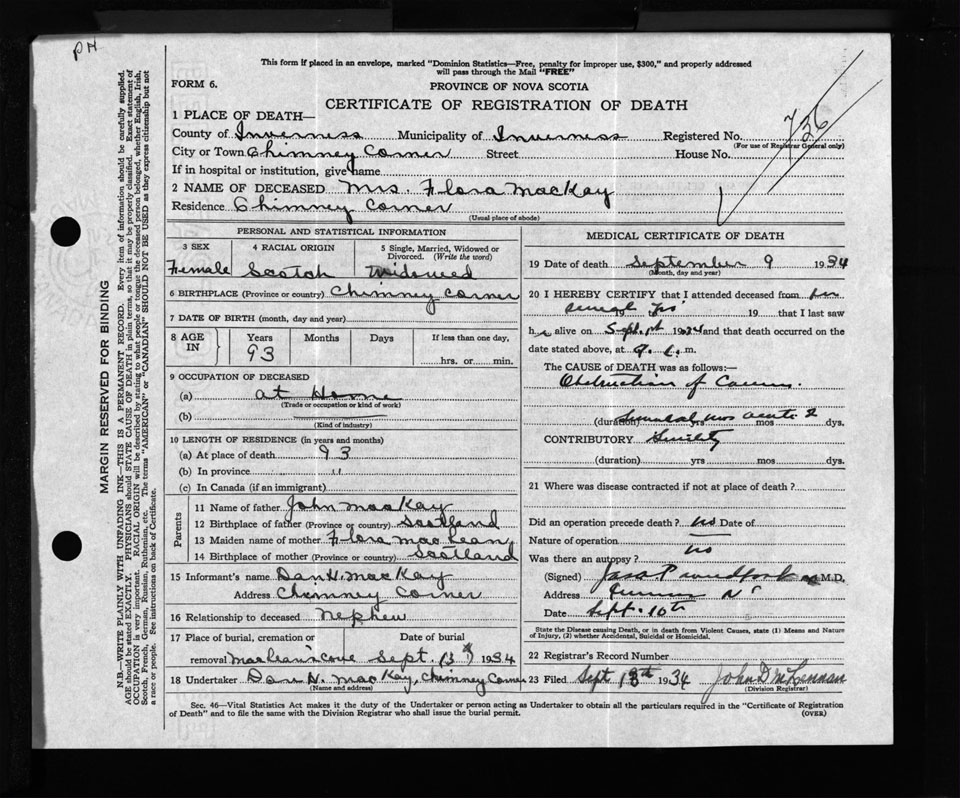 PH
This form if placed in an envelope, marked "Dominion Statistics—Free, penalty for improper use, $300," and properly addressed
will pass through the Mail "FREE"
FORM 6.
PROVINCE OF NOVA SCOTIA
CERTIFICATE OF REGISTRATION OF DEATH
736
1 PLACE OF DEATH—
County of Inverness Municipality of Inverness Registered No.
(For use of Registrar General only)
City or Town Chimney Corner Street House No.
If in hospital or institution, give name
2 NAME OF DECEASED Mrs. Flora MacKay
Residence Chimney Corner
(Usual place of abode)
PERSONAL AND STATISTICAL INFORMATION
3 SEX 4 RACIAL ORIGIN 5 Single, Married, Widowed or Divorced. (Write the word)
Female Scotch Widowed
6 BIRTHPLACE (Province or country) Chimney Corner
7 DATE OF BIRTH (month, day and year)
8 AGE IN Years Months Days If less than one day,
93 hrs. or min.
9 OCCUPATION OF DECEASED
(a) at Home
(Trade or occupation or kind of work)
(b)
(Kind of industry)
10 LENGTH OF RESIDENCE (in years and months)
(a) At place of death 93
(b) In province "
(c) In Canada (if an immigrant)
Parents
11 Name of father John MacKay
12 Birthplace of father (Province or country) Scotland
13 Maiden name of mother Flora MacLean
14 Birthplace of mother (Province or country) Scotland
15 Informant's name Dan H. MacKay
Address Chimney Corner
16 Relationship to deceased nephew
17 Place of burial, cremation or Date of burial
removal MacLean's cove Sept. 13 1934
18 Undertaker Dan H. MacKay, Chimney Corner
(Name and address)
MEDICAL CERTIFICATE OF DEATH
19 Date of death September 9 1934
(Month, day and year)
20 I HEREBY CERTIFY that I attended deceased from
19 19 that I last saw
h alive on Sept. 1st 1934 and that death occurred on
date stated above, at m.
The CAUSE OF DEATH was as follows:—
Obstruction of
(duration) yrs mos dys.
CONTRIBUTORY Senility
(duration) yrs mos dys.
21 Where was disease contracted if not at place of death?
Did an operation precede death? no Date of
Nature of operation
Was there an autopsy? no
(Signed) M.D.
Address
Date Sept. 10th
State the Disease causing Death, or in death from Violent Causes, state (1) Means and Nature
of Injury, (2) whether Accidental, Suicidal or Homicidal.
22 Registrar's Record Number
23 Filed Sept 13th 1934 John D McLennan
(Division Registrar)
Sec. 46—Vital Statistics Act makes it the duty of the Undertaker or person acting as Undertaker to obtain all the particulars required in the "Certificate of Registration
of Death" and to file the same with the Division Registrar who shall issue the burial permit. (OVER)
MARGIN RESERVED FOR BINDING
N.B.—WRITE PLAINLY WITH UNFADING INK—THIS IS A PERMANENT RECORD. Every item of information should be carefully supplied.
AGE should be stated EXACTLY. PHYSICIANS should STATE CAUSE OF DEATH in plain terms, so that it may be properly classified. Exact statement of
OCCUPATION is very important. RACIAL ORIGIN will be described by stating to what people or tongue the deceased person belonged, whether English, Irish,
Scotch, French, German, Russian, Ruthenian, etc. The terms "AMERICAN" or "CANADIAN" SHOULD NOT BE USED as they express citizenship but not
a race or people. See instructions on back of Certificate.